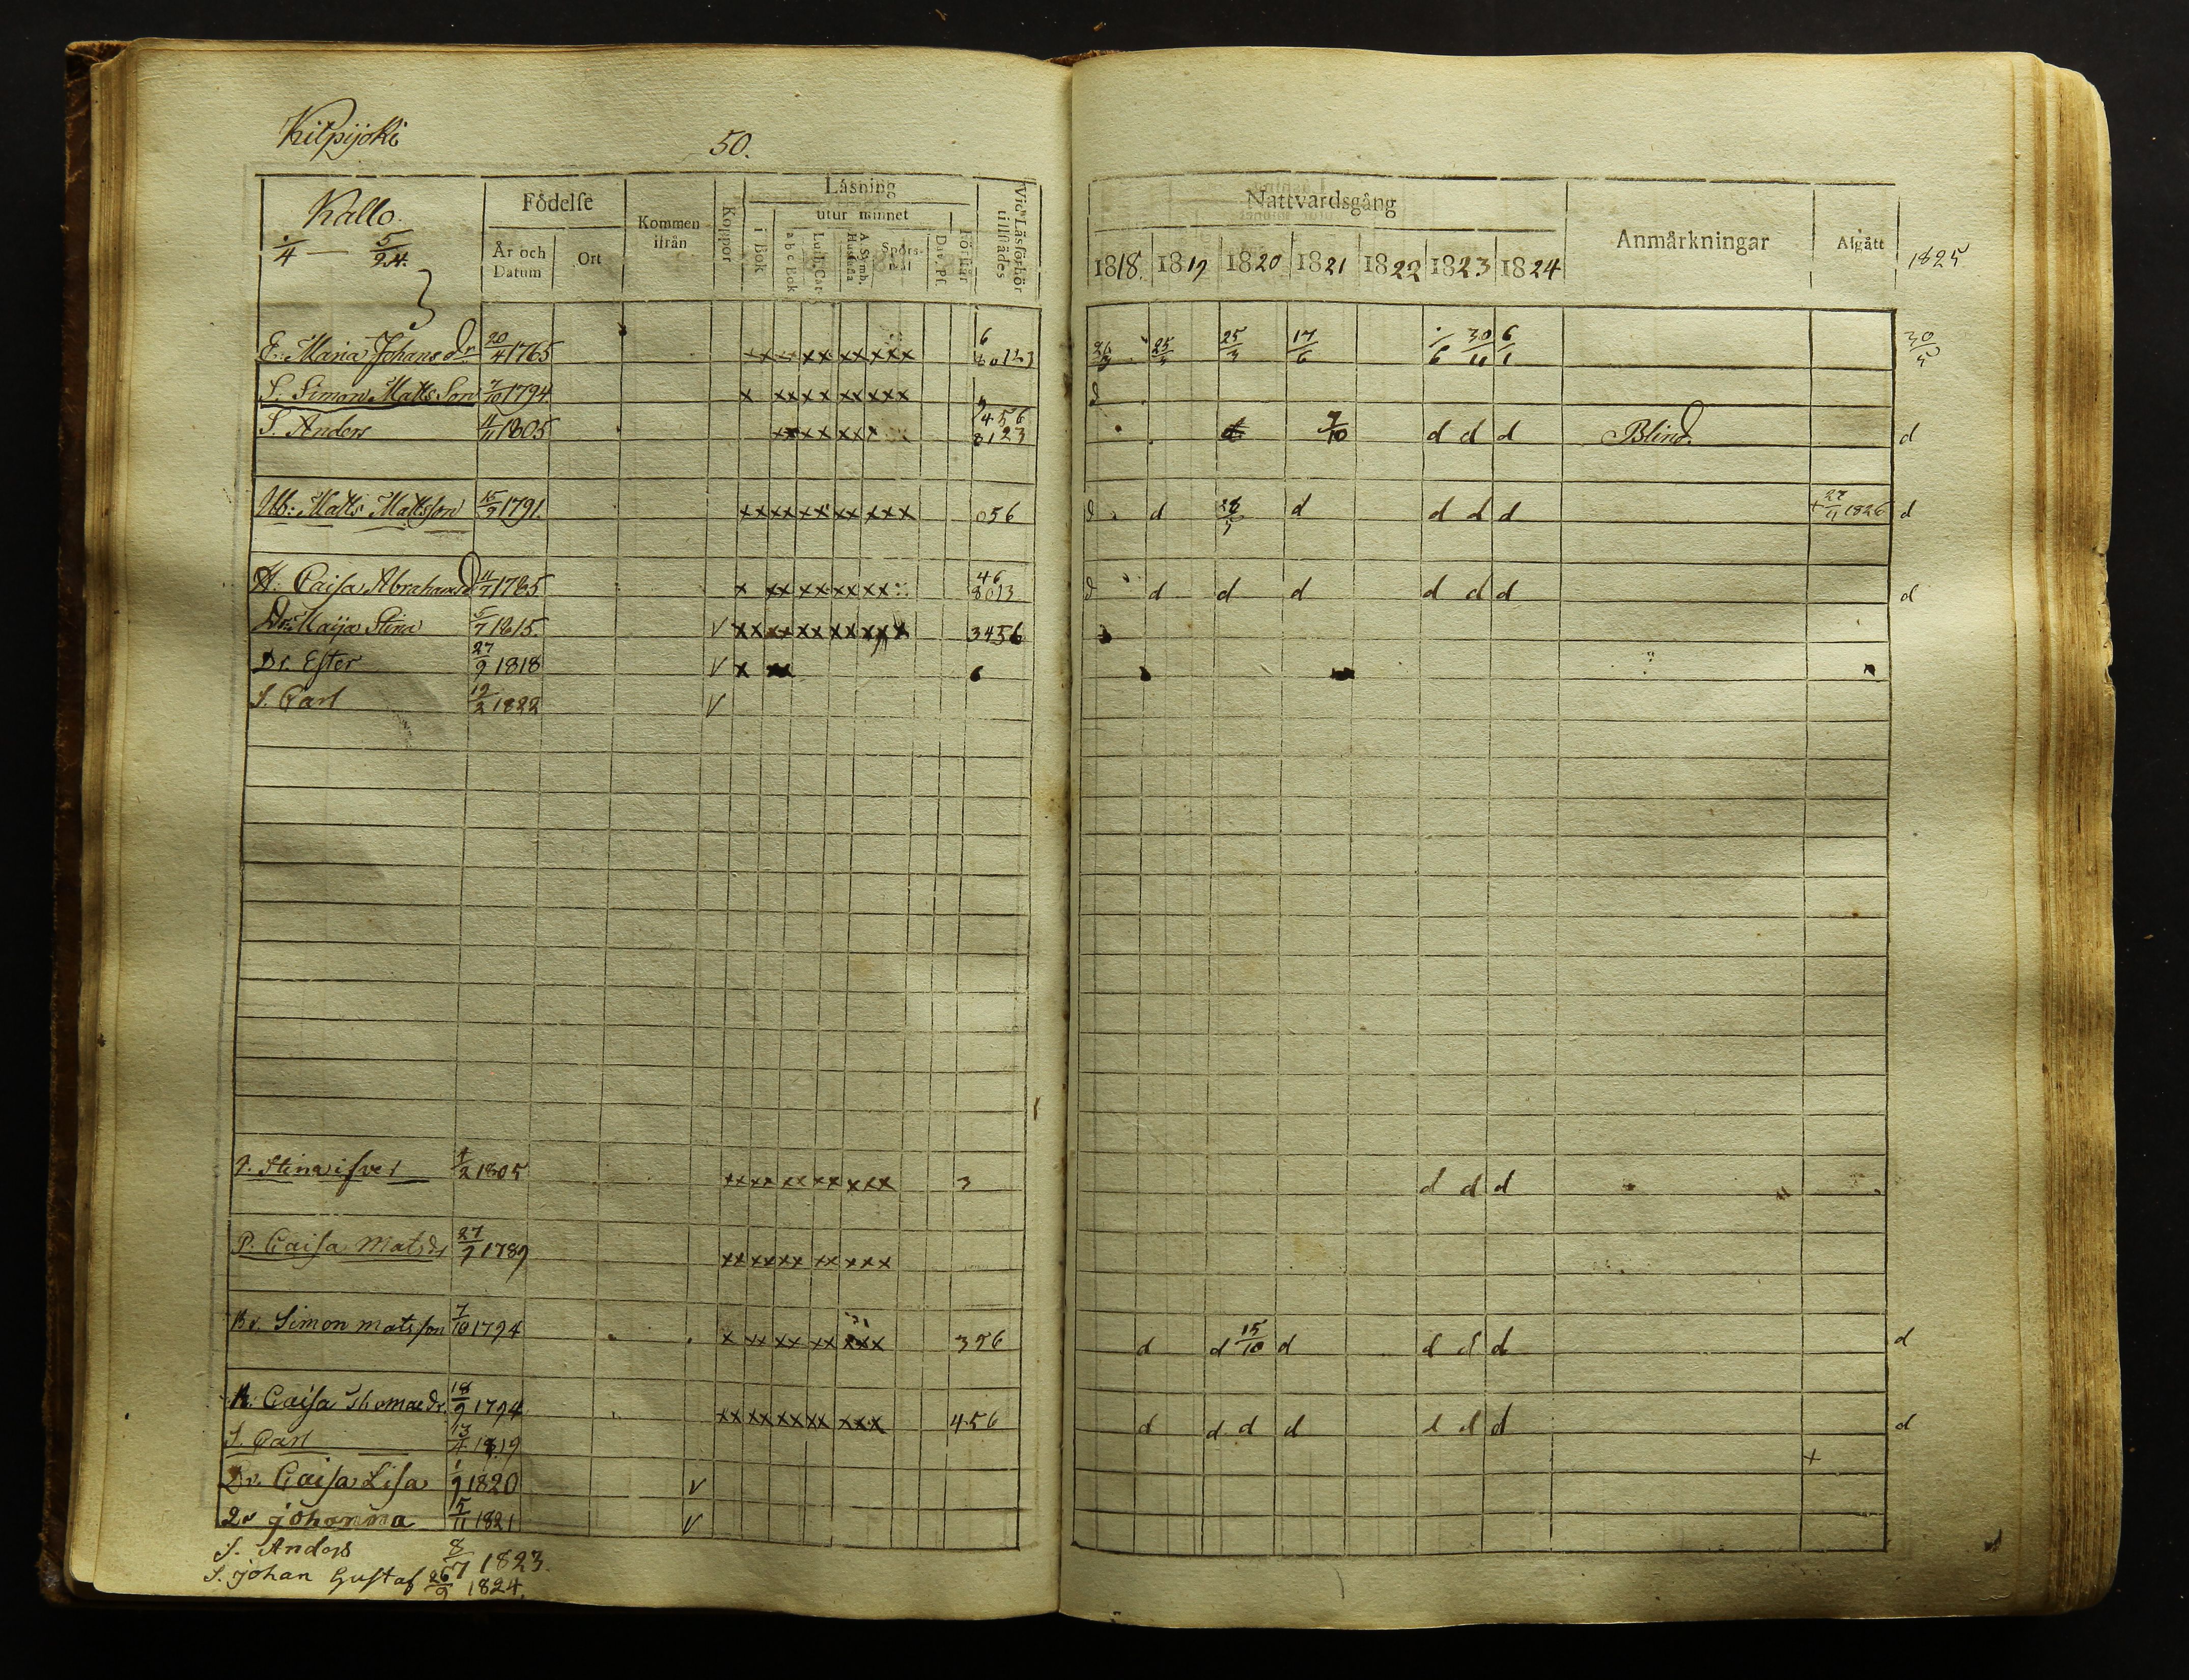 Kilpijoki
50.
Kallo.
1/4 — 5/24.
Födelse
År och Datum
Ort
Kommen ifrån
Koppor
Läsning
utur minnet
i Bok
a b c Bok
Luth. Cat.
A. Symb. Hustafla
Spörs-mål
Dav. Ps.
Förklär
Vid Läsförhör tillstädes
Nattvardsgång
1818. 1819 1820 1821 1822 1823 1824
Anmärkningar
Afgått
1825
E. Maria Johansdr 20/4 1765 xx xx xx xxx 25/3 25/3 17/6 6 30/11 6/1 30/5
S. Simon Matts Son 7/10 1794 x xx xx xx xxx d
S. Anders 4/11 1805 9456 8123 d 7/10 d d d Blind d
Ub: Matts Mattsson 15/9 1791. xx xx xx xx xxx 056 d d d d d d 27/11 1826 d
H: Caisa Abrahamsd 11/7 1785 x xx xx xx xx 46 8013 d d d d d d d d
Dr: Maija Stina 5/7 1815. V xx xx xx xx xxx 3456
Dr. Ester 27/9 1818 V x 6
S. Carl 19/2 1822 V
P. Stina ifver 4/2 1805 xx xx xx xx xxx 3 d d d
P. Caisa Matsdr 27/9 1789 xx xx xx xx xxx
Br. Simon matsson 7/10 1794 x xx xx xx xxx 356 d d 15/10 d d d d d
H: Caisa Thomaedr. 18/9 1794 xx xx xx xx xxx 456 d d d d d d d d
S. Carl 13/4 1819 +
Dr. Caisa Lisa 1/9 1820 V
Dr johanna 15/11 1821 V
S. Anders 8/7 1823.
S. johan Gustaf 26/9 1824.